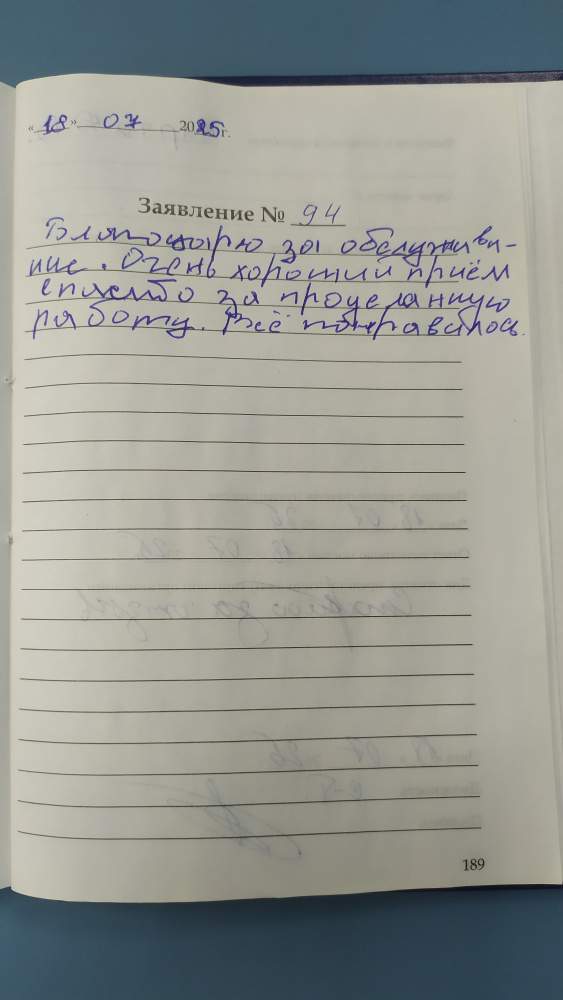 «18» 07 2025г.
Заявление № 94
Благодарю за обслужива-
ние. Очень хороший приём
спасибо за проделанную
работу. Всё понравилось.
189